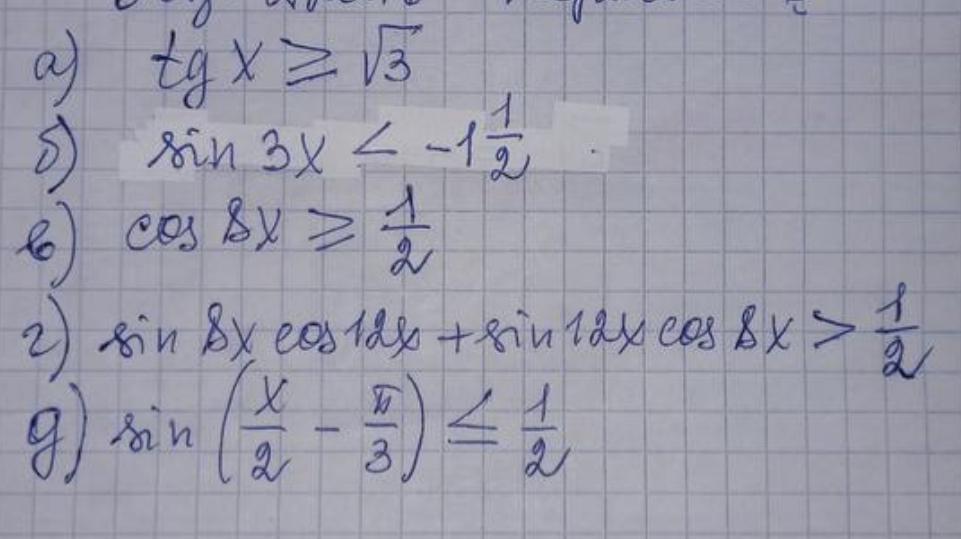 а) tg x ≥ √3
б) sin 3x < -1 1/2
в) cos 8x ≥ 1/2
г) sin 8x cos 12x + sin 12x cos 8x > 1/2
д) sin (x/2 - π/3) ≤ 1/2